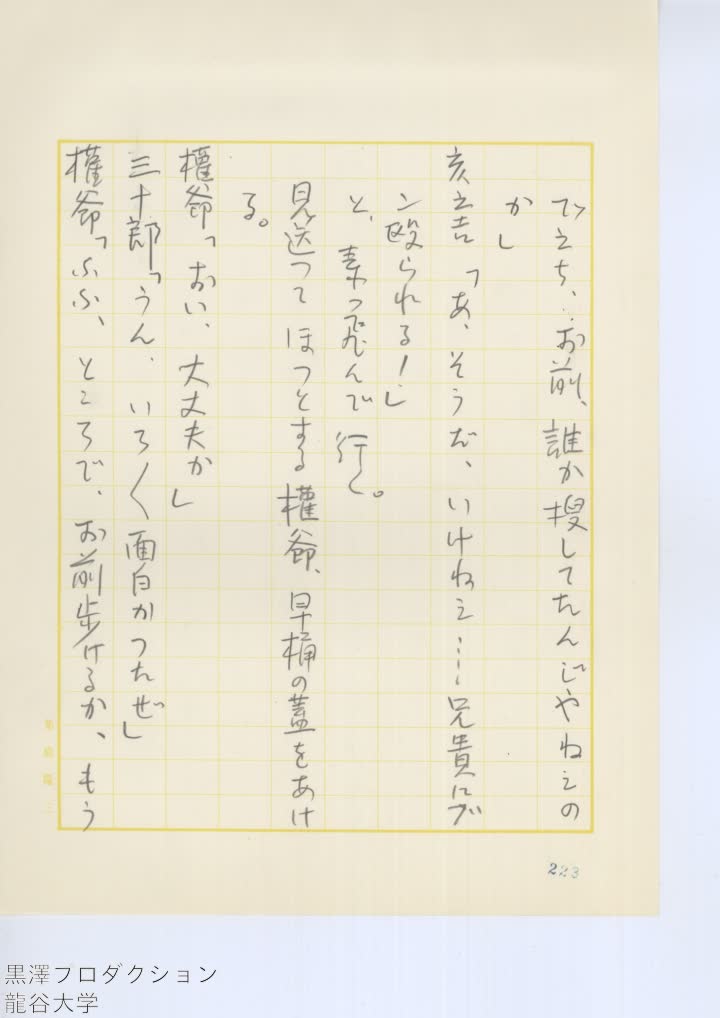 でえち、お前、誰か捜してたんじやねえの
か」
亥之吉「あ、そうだ、いけねえ……兄貴にブ
ン殴られる！」
と、素つ飛んで行く。
見送つてほつとする権爺、早桶の蓋をあけ
る。
権爺「おい、大丈夫か」
三十郎「うん、いろ〱面白かつたぜ」
権爺「ふふ、ところで、お前歩けるか、もう
223
黒澤プロダクション
龍谷大学